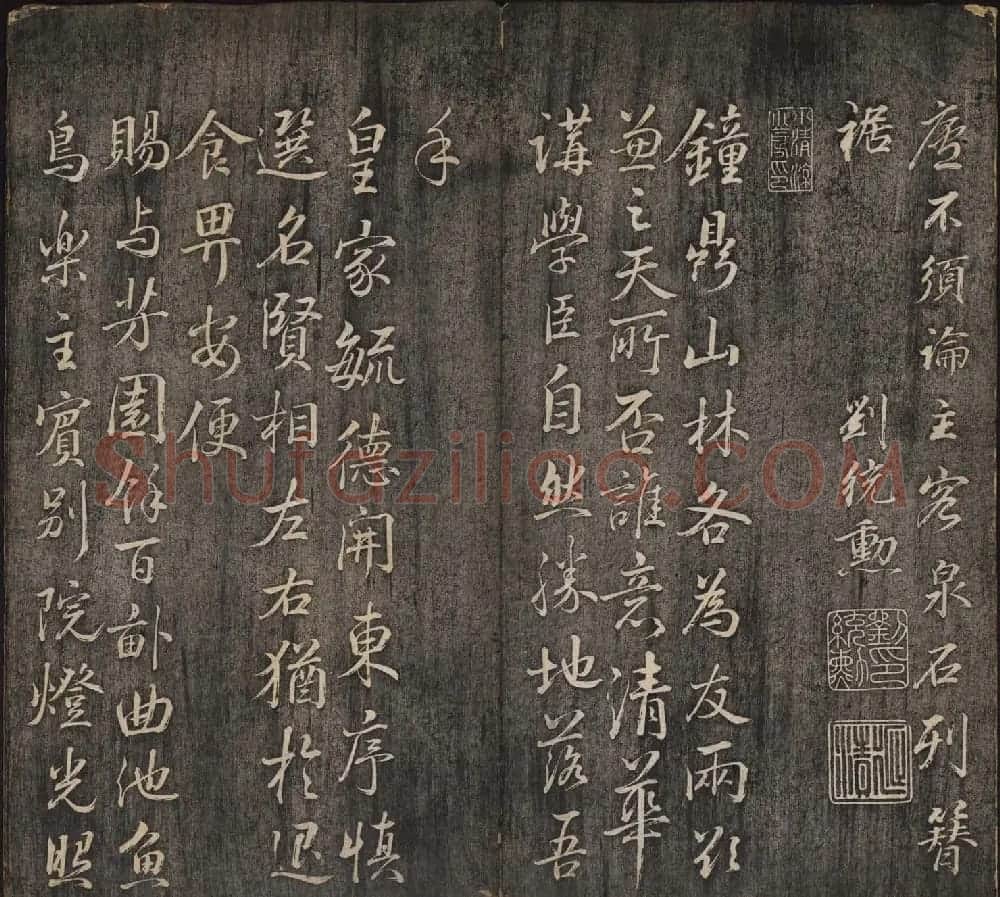 廬不須論主客泉石列簪
裾
劉統勳
劉統勳印
鐘鼎山林各為友兩欲
兼之天所否誰意清華
講學臣自然勝地落吾
手
皇家毓德開東序慎
選名賢相左右猶於退
食畀安便
賜与芳園餘百畝曲池魚
鳥樂主賓別院燈光照
Shufaziliao.COM